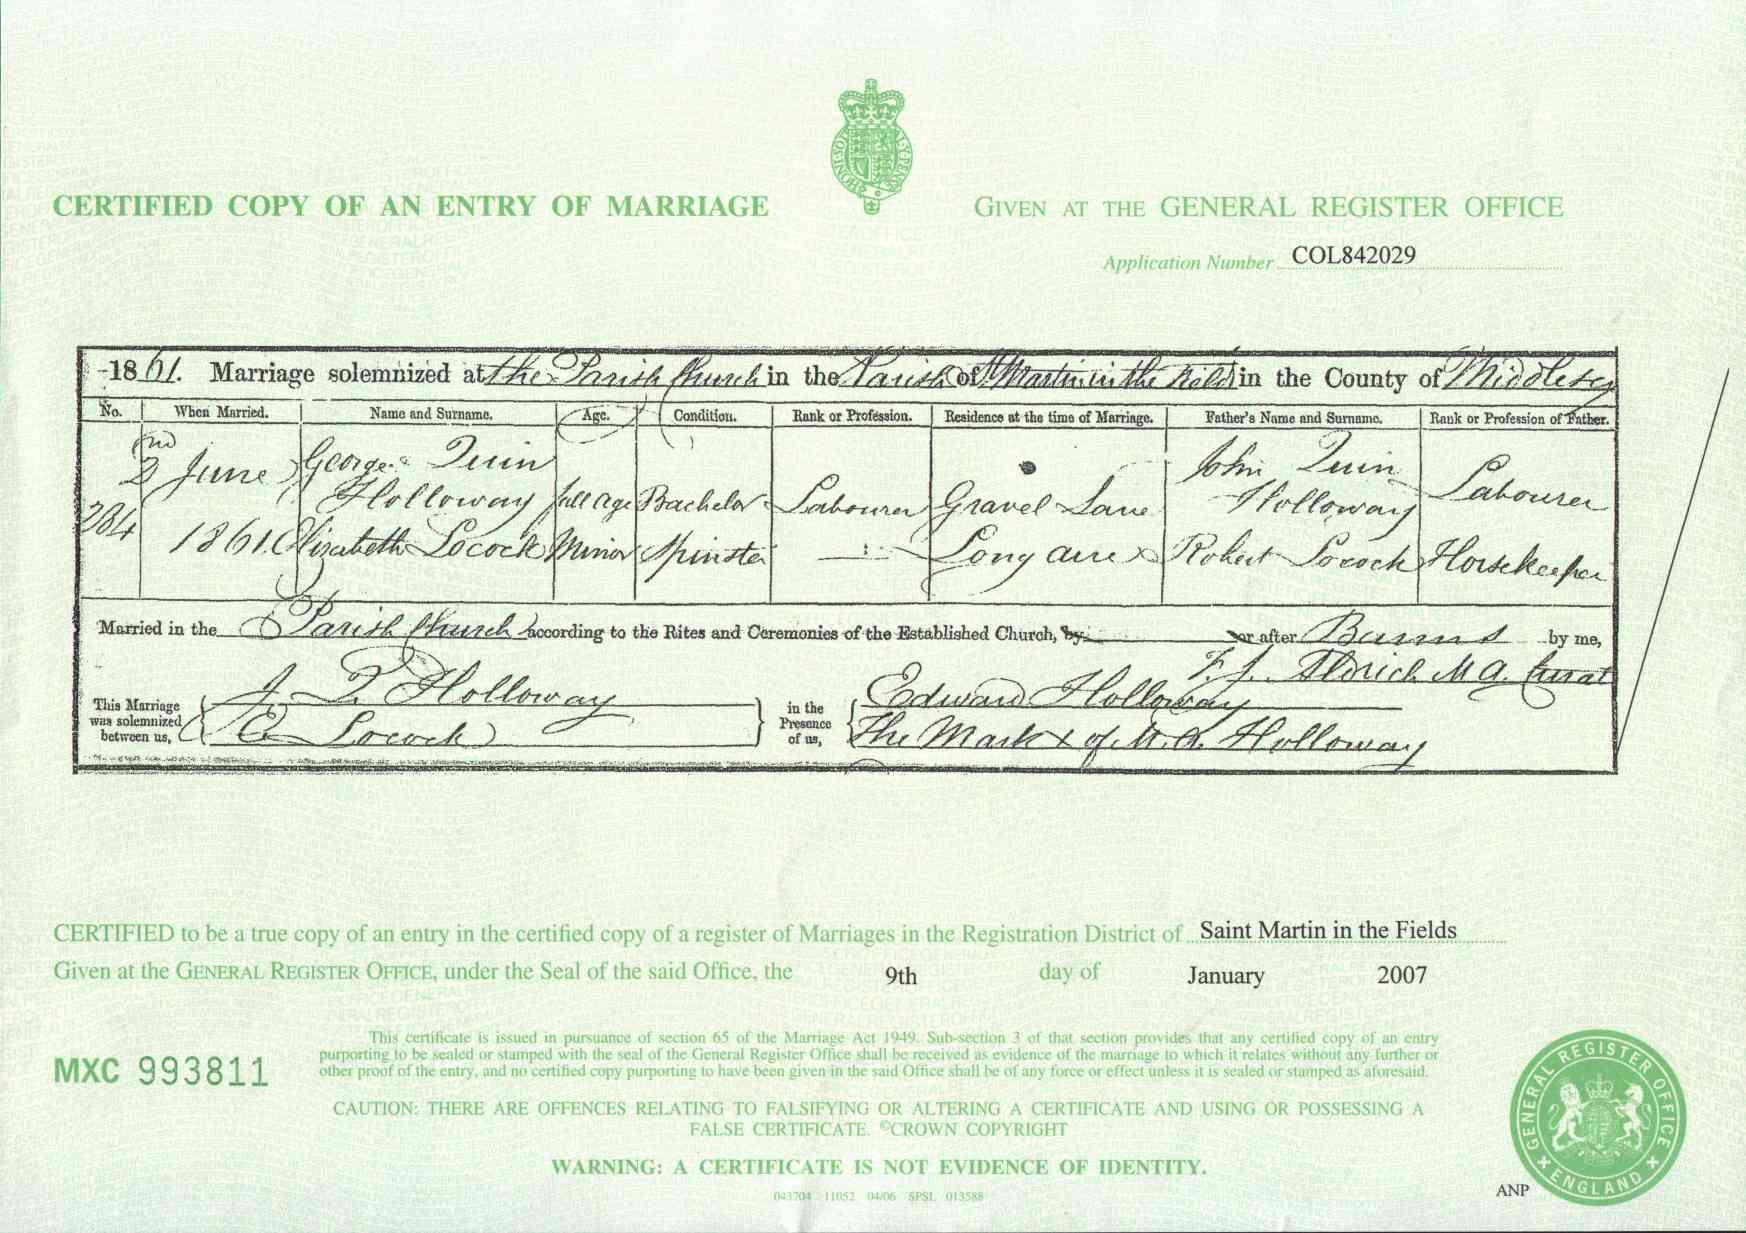 CERTIFIED COPY OF AN ENTRY OF MARRIAGE
GIVEN AT THE GENERAL REGISTER OFFICE
Application Number COL842029
1861. Marriage solemnized at the Parish Church in the Parish of St Martin in the Fields in the County of Middlesex
No. When Married. Name and Surname. Age. Condition. Rank or Profession. Residence at the time of Marriage. Father's Name and Surname. Rank or Profession of Father.
284 2nd June 1861. George Quin Holloway full age Bachelor Labourer Gravel Lane John Quin Holloway Labourer
Elizabeth Locock Minor Spinster — Long acre Robert Locock Horsekeeper
Married in the Parish Church according to the Rites and Ceremonies of the Established Church, by or after Banns by me,
F. J. Aldrich M A. Curat
This Marriage was solemnized between us, J. Q Holloway
E. Locock
in the Presence of us, Edward Holloway
The Mark x of Holloway
CERTIFIED to be a true copy of an entry in the certified copy of a register of Marriages in the Registration District of Saint Martin in the Fields
Given at the GENERAL REGISTER OFFICE, under the Seal of the said Office, the 9th day of January 2007
This certificate is issued in pursuance of section 65 of the Marriage Act 1949. Sub-section 3 of that section provides that any certified copy of an entry
purporting to be sealed or stamped with the seal of the General Register Office shall be received as evidence of the marriage to which it relates without any further or
other proof of the entry, and no certified copy purporting to have been given in the said Office shall be of any force or effect unless it is sealed or stamped as aforesaid.
MXC 993811
CAUTION: THERE ARE OFFENCES RELATING TO FALSIFYING OR ALTERING A CERTIFICATE AND USING OR POSSESSING A
FALSE CERTIFICATE. ©CROWN COPYRIGHT
WARNING: A CERTIFICATE IS NOT EVIDENCE OF IDENTITY.
043704 11052 04/06 SPSL 013588
ANP
GENERAL REGISTER OFFICE
ENGLAND